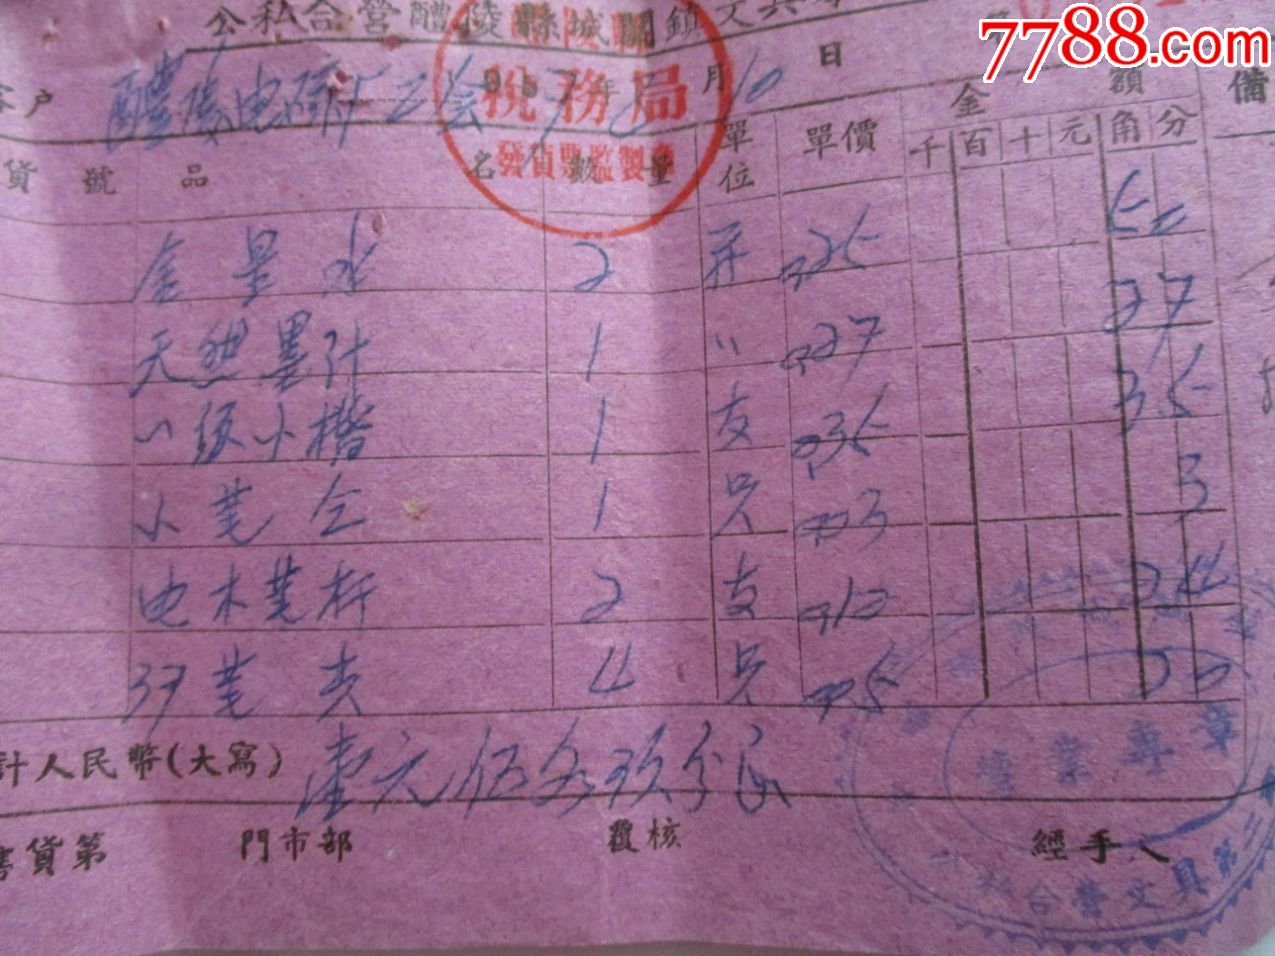 7788.com
公私合營醴陵縣城關鎮文具
稅務局
發貨票監製章
客户 醴陵电瓷厂工会 195 年 月 10 日
貨號 品名 數量 單位 單價 金額 備
千 百 十 元 角 分
金墨水 2 瓶 0.25 50
天然墨汁 1 〃 0.27 27
一级小楷 1 支 0.35 35
小芼仝 1 只 0.03 3
电木芼杆 2 支 0.12 24
芼夹 4 只 0.05 20
計人民幣(大寫) 壹元伍角玖分
營業專章
售貨第 門市部 覆核 經手人
公私合營文具第二